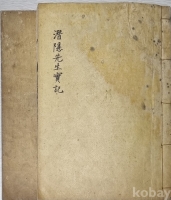 潛隱先生實記
kobay